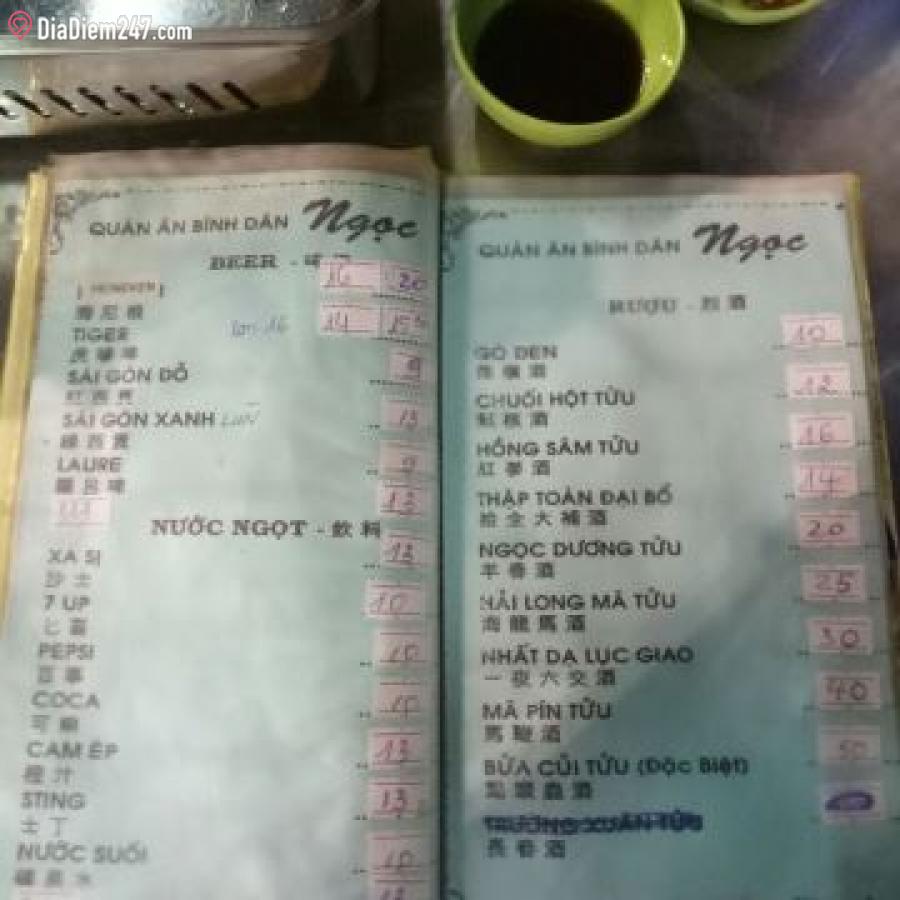 DiaDiem247.com
QUÁN ĂN BÌNH DÂN Ngọc
BEER -
16 20
HEINEKEN
TIGER
14 15
SÀI GÒN ĐỎ
9
SÀI GÒN XANH LÙN
13
LAURE
9
13
NƯỚC NGỌT - 飲料
XÁ SỊ 13
沙士
7 UP 10
七喜
PEPSI 10
百事
COCA
可
CAM ÉP 13
橙汁
STING 13
士丁
NƯỚC SUỐI 10
礦泉水
13
QUÁN ĂN BÌNH DÂN Ngọc
RƯỢU - 烈酒
GÒ ĐEN 10
酒
CHUỐI HỘT TỬU 12
酒
HỒNG SÂM TỬU 16
紅參酒
THẬP TOÀN ĐẠI BỔ 14
拾全大補酒
NGỌC DƯƠNG TỬU 20
羊春酒
HẢI LONG MÃ TỬU 25
海龍馬酒
NHẤT DẠ LỤC GIAO 30
一夜六交酒
MÃ PÍN TỬU 40
馬鞭酒
BỬA CỦI TỬU (Đặc Biệt) 50
酒
TRƯỜNG XUÂN TỬU
長春酒